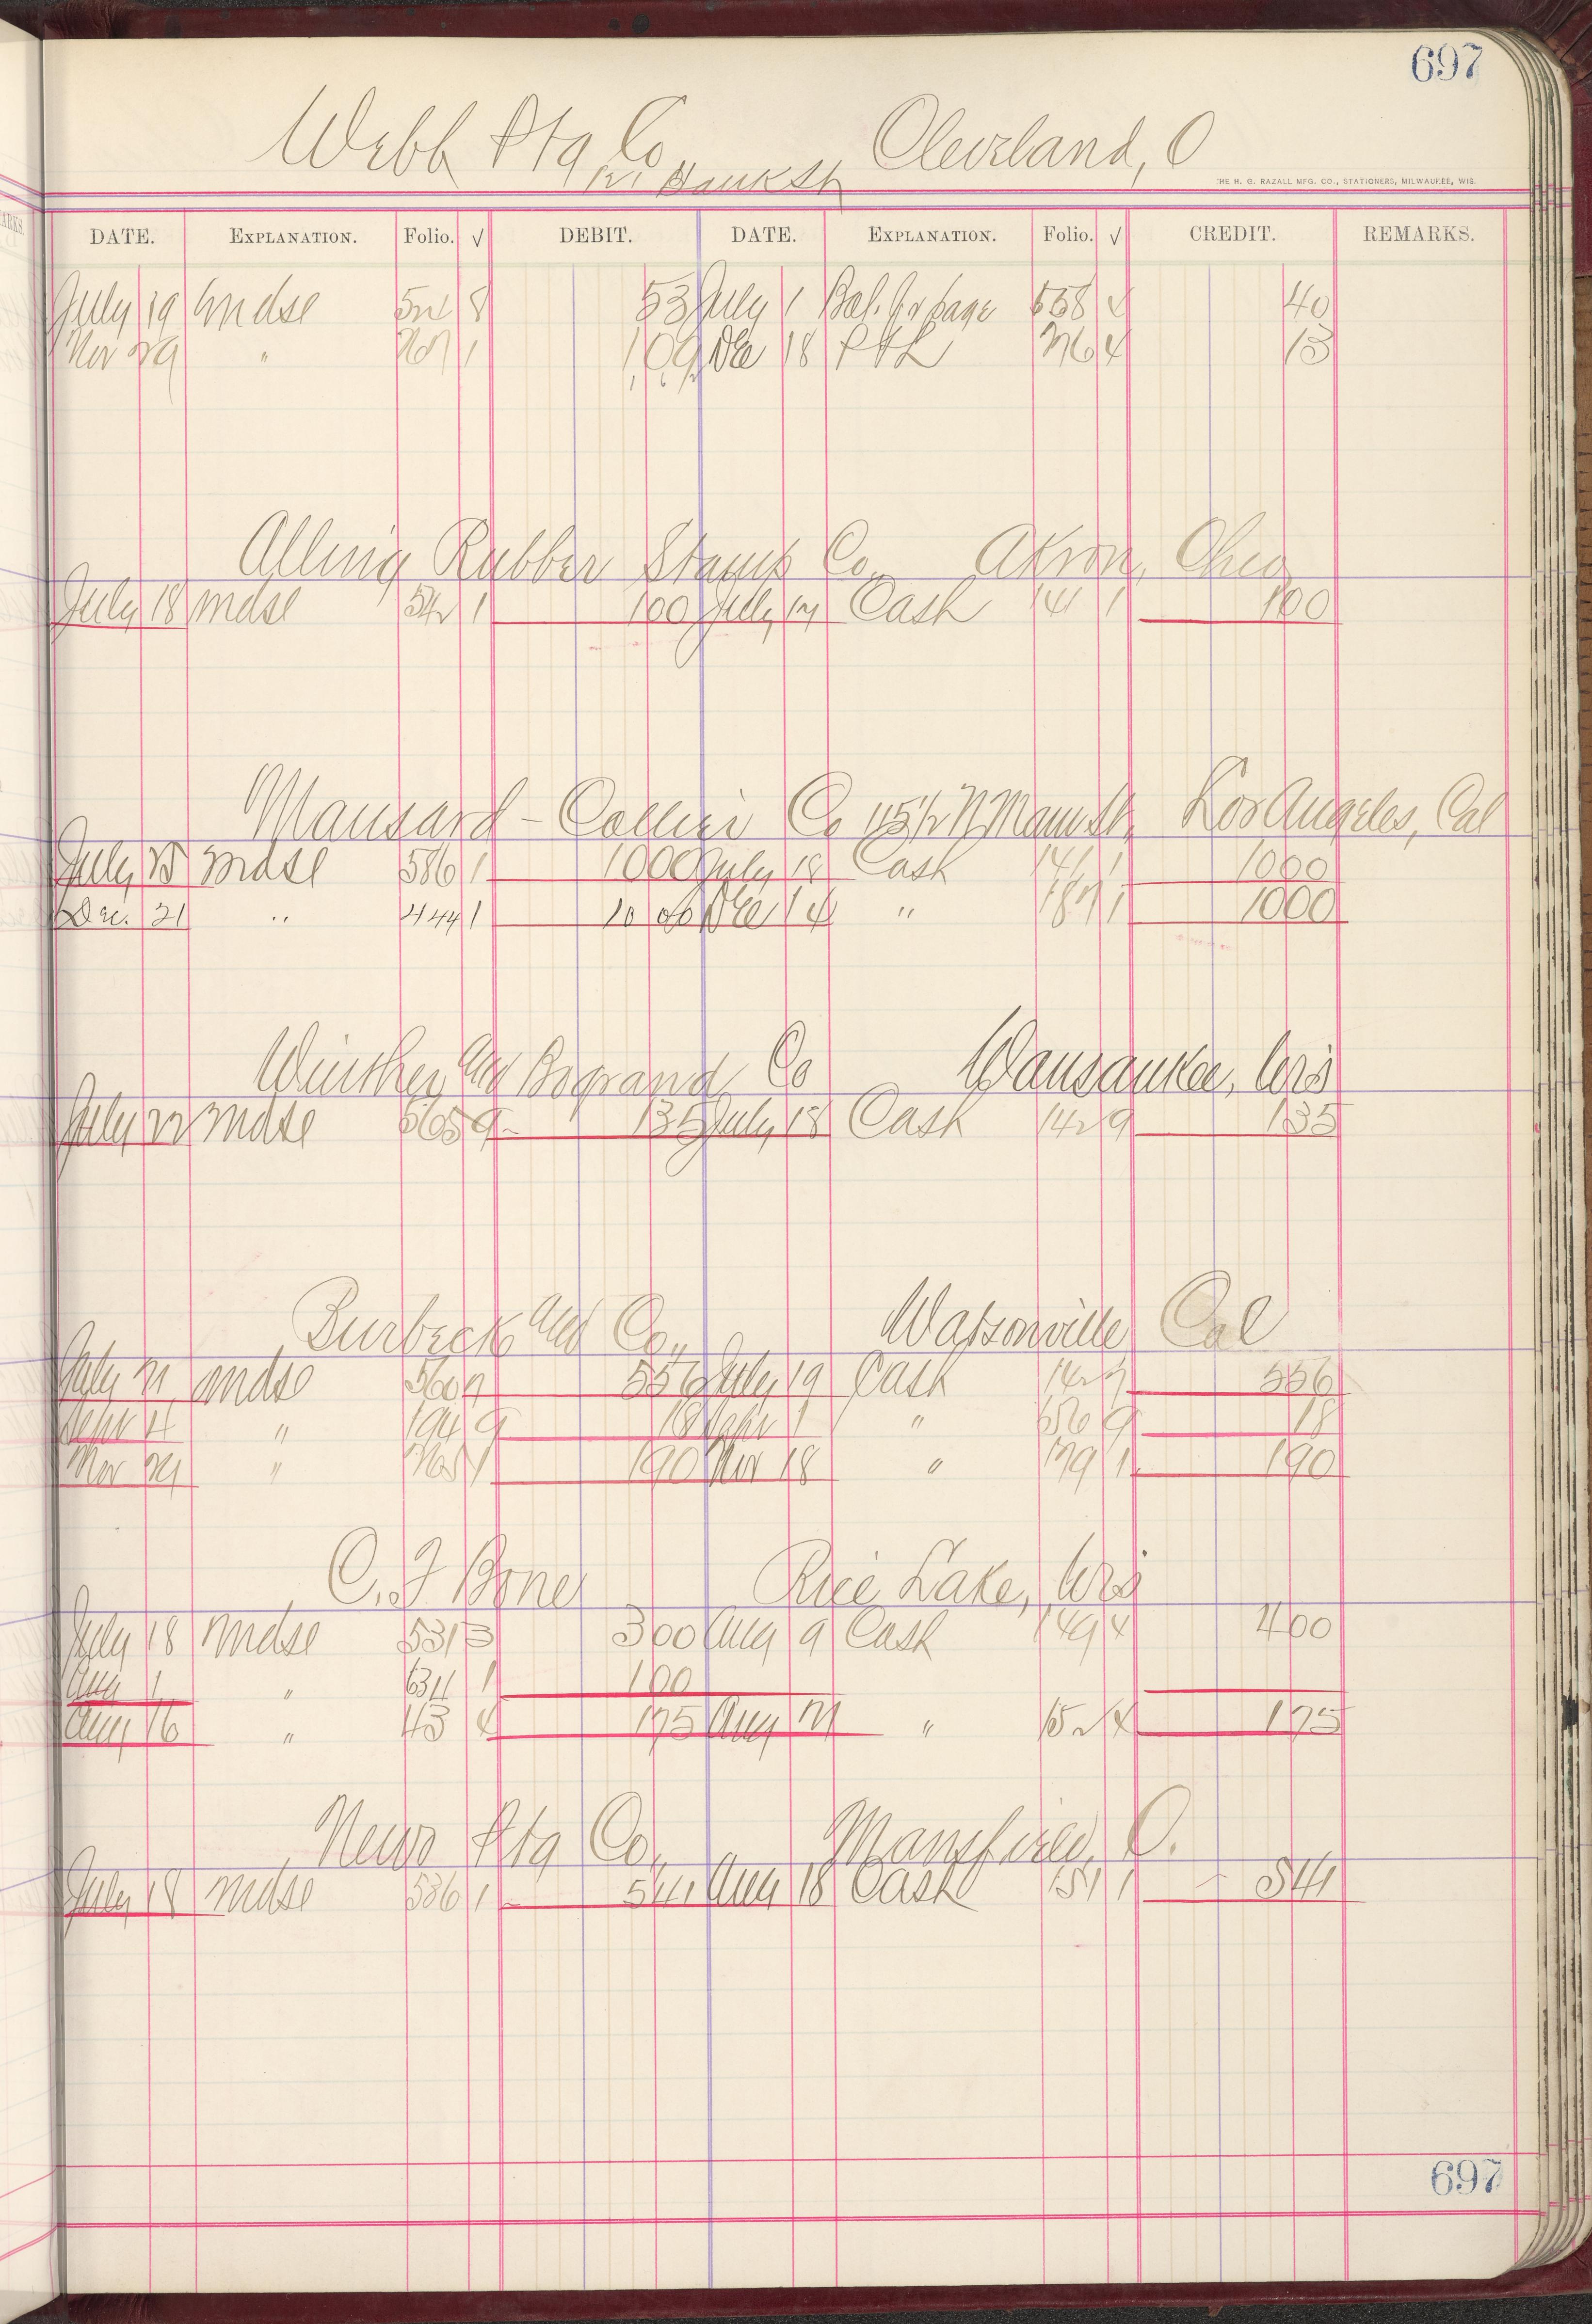 697
Webb Ptg Co Cleveland, O
121 Bank St
THE H. G. RAZALL MFG. CO., STATIONERS, MILWAUKEE, WIS.
DATE. EXPLANATION. Folio. √ DEBIT. DATE. EXPLANATION. Folio. √ CREDIT. REMARKS.
July 19 Mdse 8 53 July 1 Bal. 558 4 40
Nov 29 " 1 109 Dec 18 P & L 276 4 13
Alling Rubber Stamp Co., Akron, Ohio
July 18 Mdse 542 1 100 July 17 Cash 141 1 100
Mansard - Collier Co 115 1/2 N Main St., Los Angeles, Cal
July 25 Mdse 586 1 1000 July 18 Cash 141 1 1000
Dec. 21 " 444 1 10 00 Dec 14 " 187 1 1000
Winther and Bogrand Co Wausaukee, Wis
July 22 Mdse 565 9 135 July 18 Cash 142 9 135
Burbeck and Co., Watsonville Cal
July 21 Mdse 560 7 556 July 19 Cash 142 7 556
Sept 4 " 194 9 18 Sept 1 " 156 9 18
Nov 29 " 1 190 Nov 18 " 179 1 190
C. J Bone Rice Lake, Wis
July 18 Mdse 531 3 300 Aug 9 Cash 149 4 400
Aug 1 " 634 1 100
Aug 16 " 43 4 175 Aug 21 " 152 4 175
News Ptg Co., Mansfield, O.
July 18 Mdse 536 1 541 Aug 18 Cash 151 1 541
697